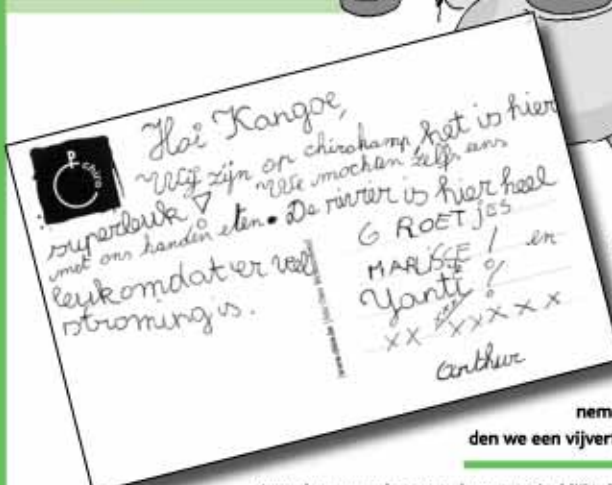 chiro
Hoi Kangoe,
Wij zijn op chirokamp, het is hier
superleuk! We mochten zelfs ons
met ons handen eten. De rivier is hier heel
leuk omdat er veel
stroming is.
GROETJES
MARISSE! en
Yanti!
xx xxxxx
Arthur
nem
den we een vijver